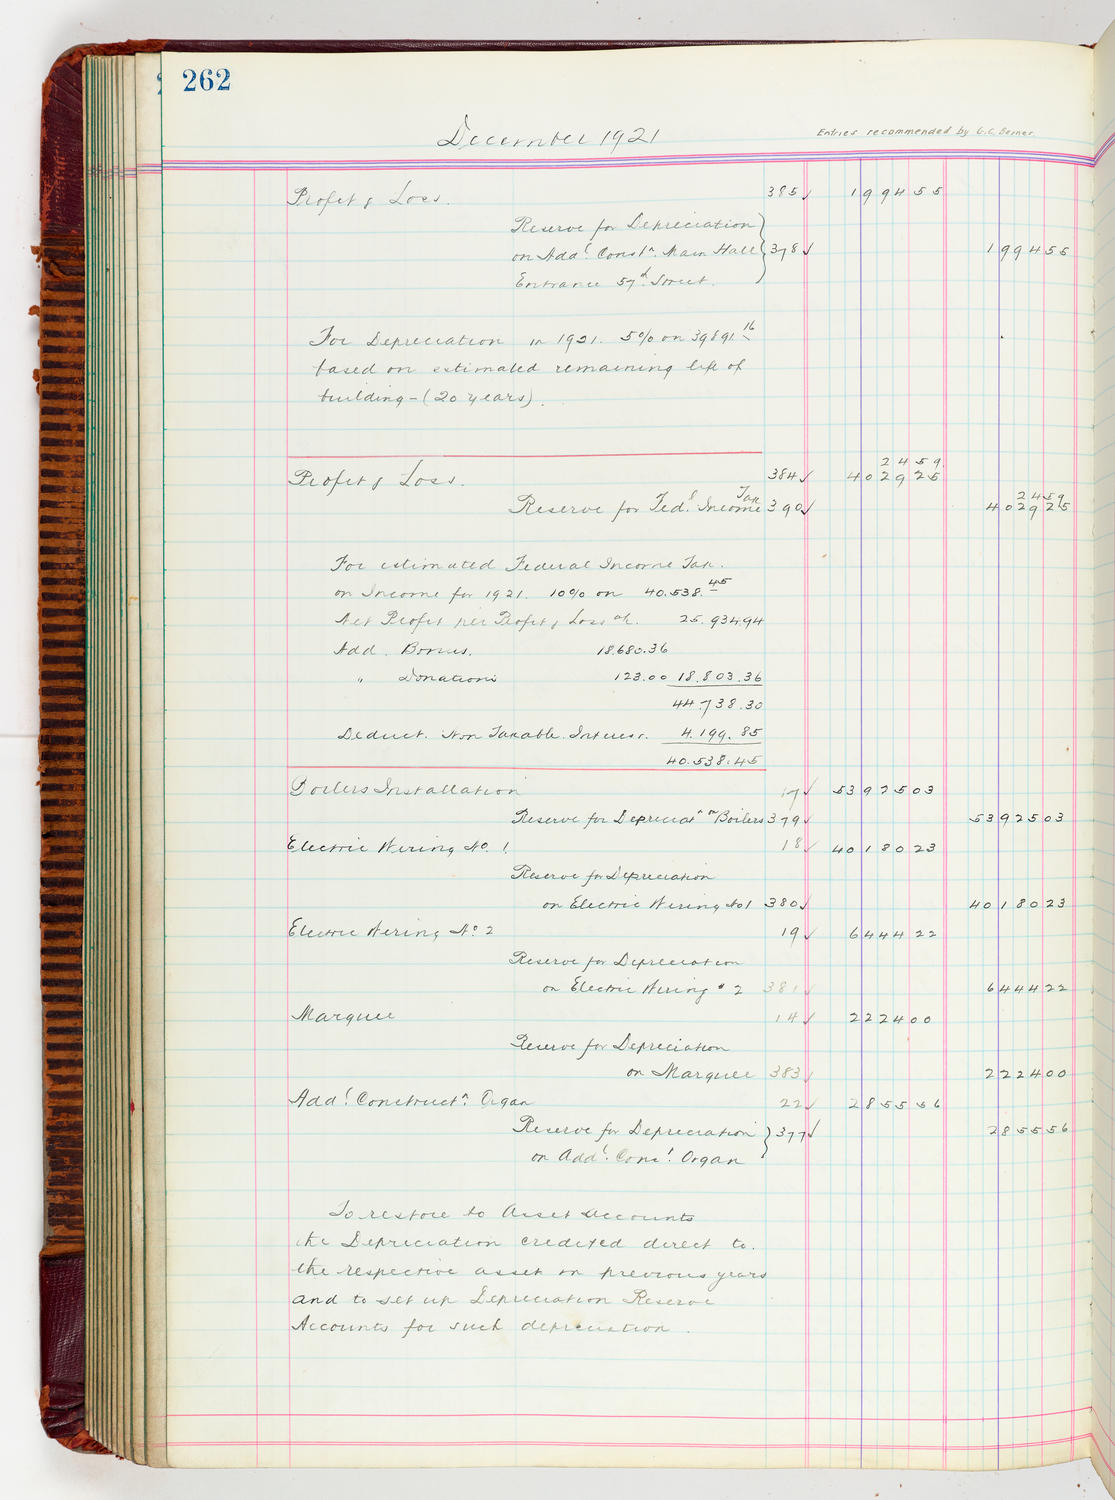 262
December 1921
Entries recommended by G.C. Berner
Profit & Loss. 385 ✓ 1994 55
Reserve for Depreciation
on Addl. Constn. Main Hall 378 ✓ 1994 55
Entrance 57th Street.
For Depreciation in 1921. 5% on 39891.16
based on estimated remaining life of
building - (20 years).
2459
Profit & Loss. 384 ✓ 4029 25
2459
Reserve for Fedl. Income Tax 390 ✓ 4029 25
For estimated Federal Income Tax.
on Income for 1921. 10% on 40.538.45
Net Profit per Profit & Loss a/c. 25.934.94
Add. Bonus. 18.680.36
" Donations 123.00 18.803.36
44.738.30
Deduct. Non Taxable. Interest. 4.199.85
40.538.45
Boilers Installation 17 ✓ 53925 03
Reserve for Depreciatn on Boilers 379 ✓ 53925 03
Electric Wiring No. 1. 18 ✓ 40180 23
Reserve for Depreciation
on Electric Wiring No 1 380 ✓ 40180 23
Electric Wiring No. 2 19 ✓ 6444 22
Reserve for Depreciation
on Electric Wiring # 2 381 ✓ 6444 22
Marquee 14 ✓ 2224 00
Reserve for Depreciation
on Marquee 383 ✓ 2224 00
Addl. Constructn. Organ 22 ✓ 2855 56
Reserve for Depreciation 377 ✓ 2855 56
on Addl. Const. Organ
To restore to Asset Accounts
the Depreciation credited direct to.
the respective asset in previous years
and to set up Depreciation Reserve
Accounts for such depreciation.